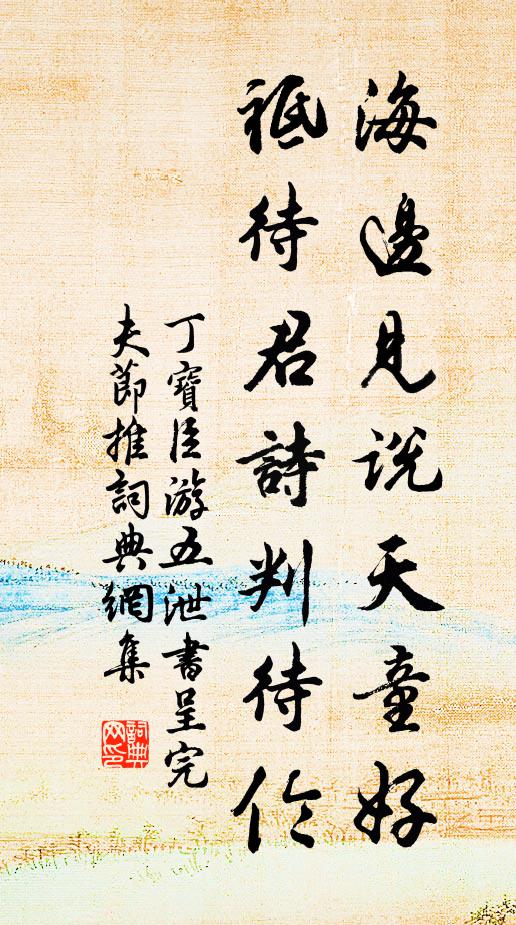 海邊見說天童好
祗待君詩判待伶
丁寶臣游五泄書呈完
夫節推詞典網集
詞典
网印